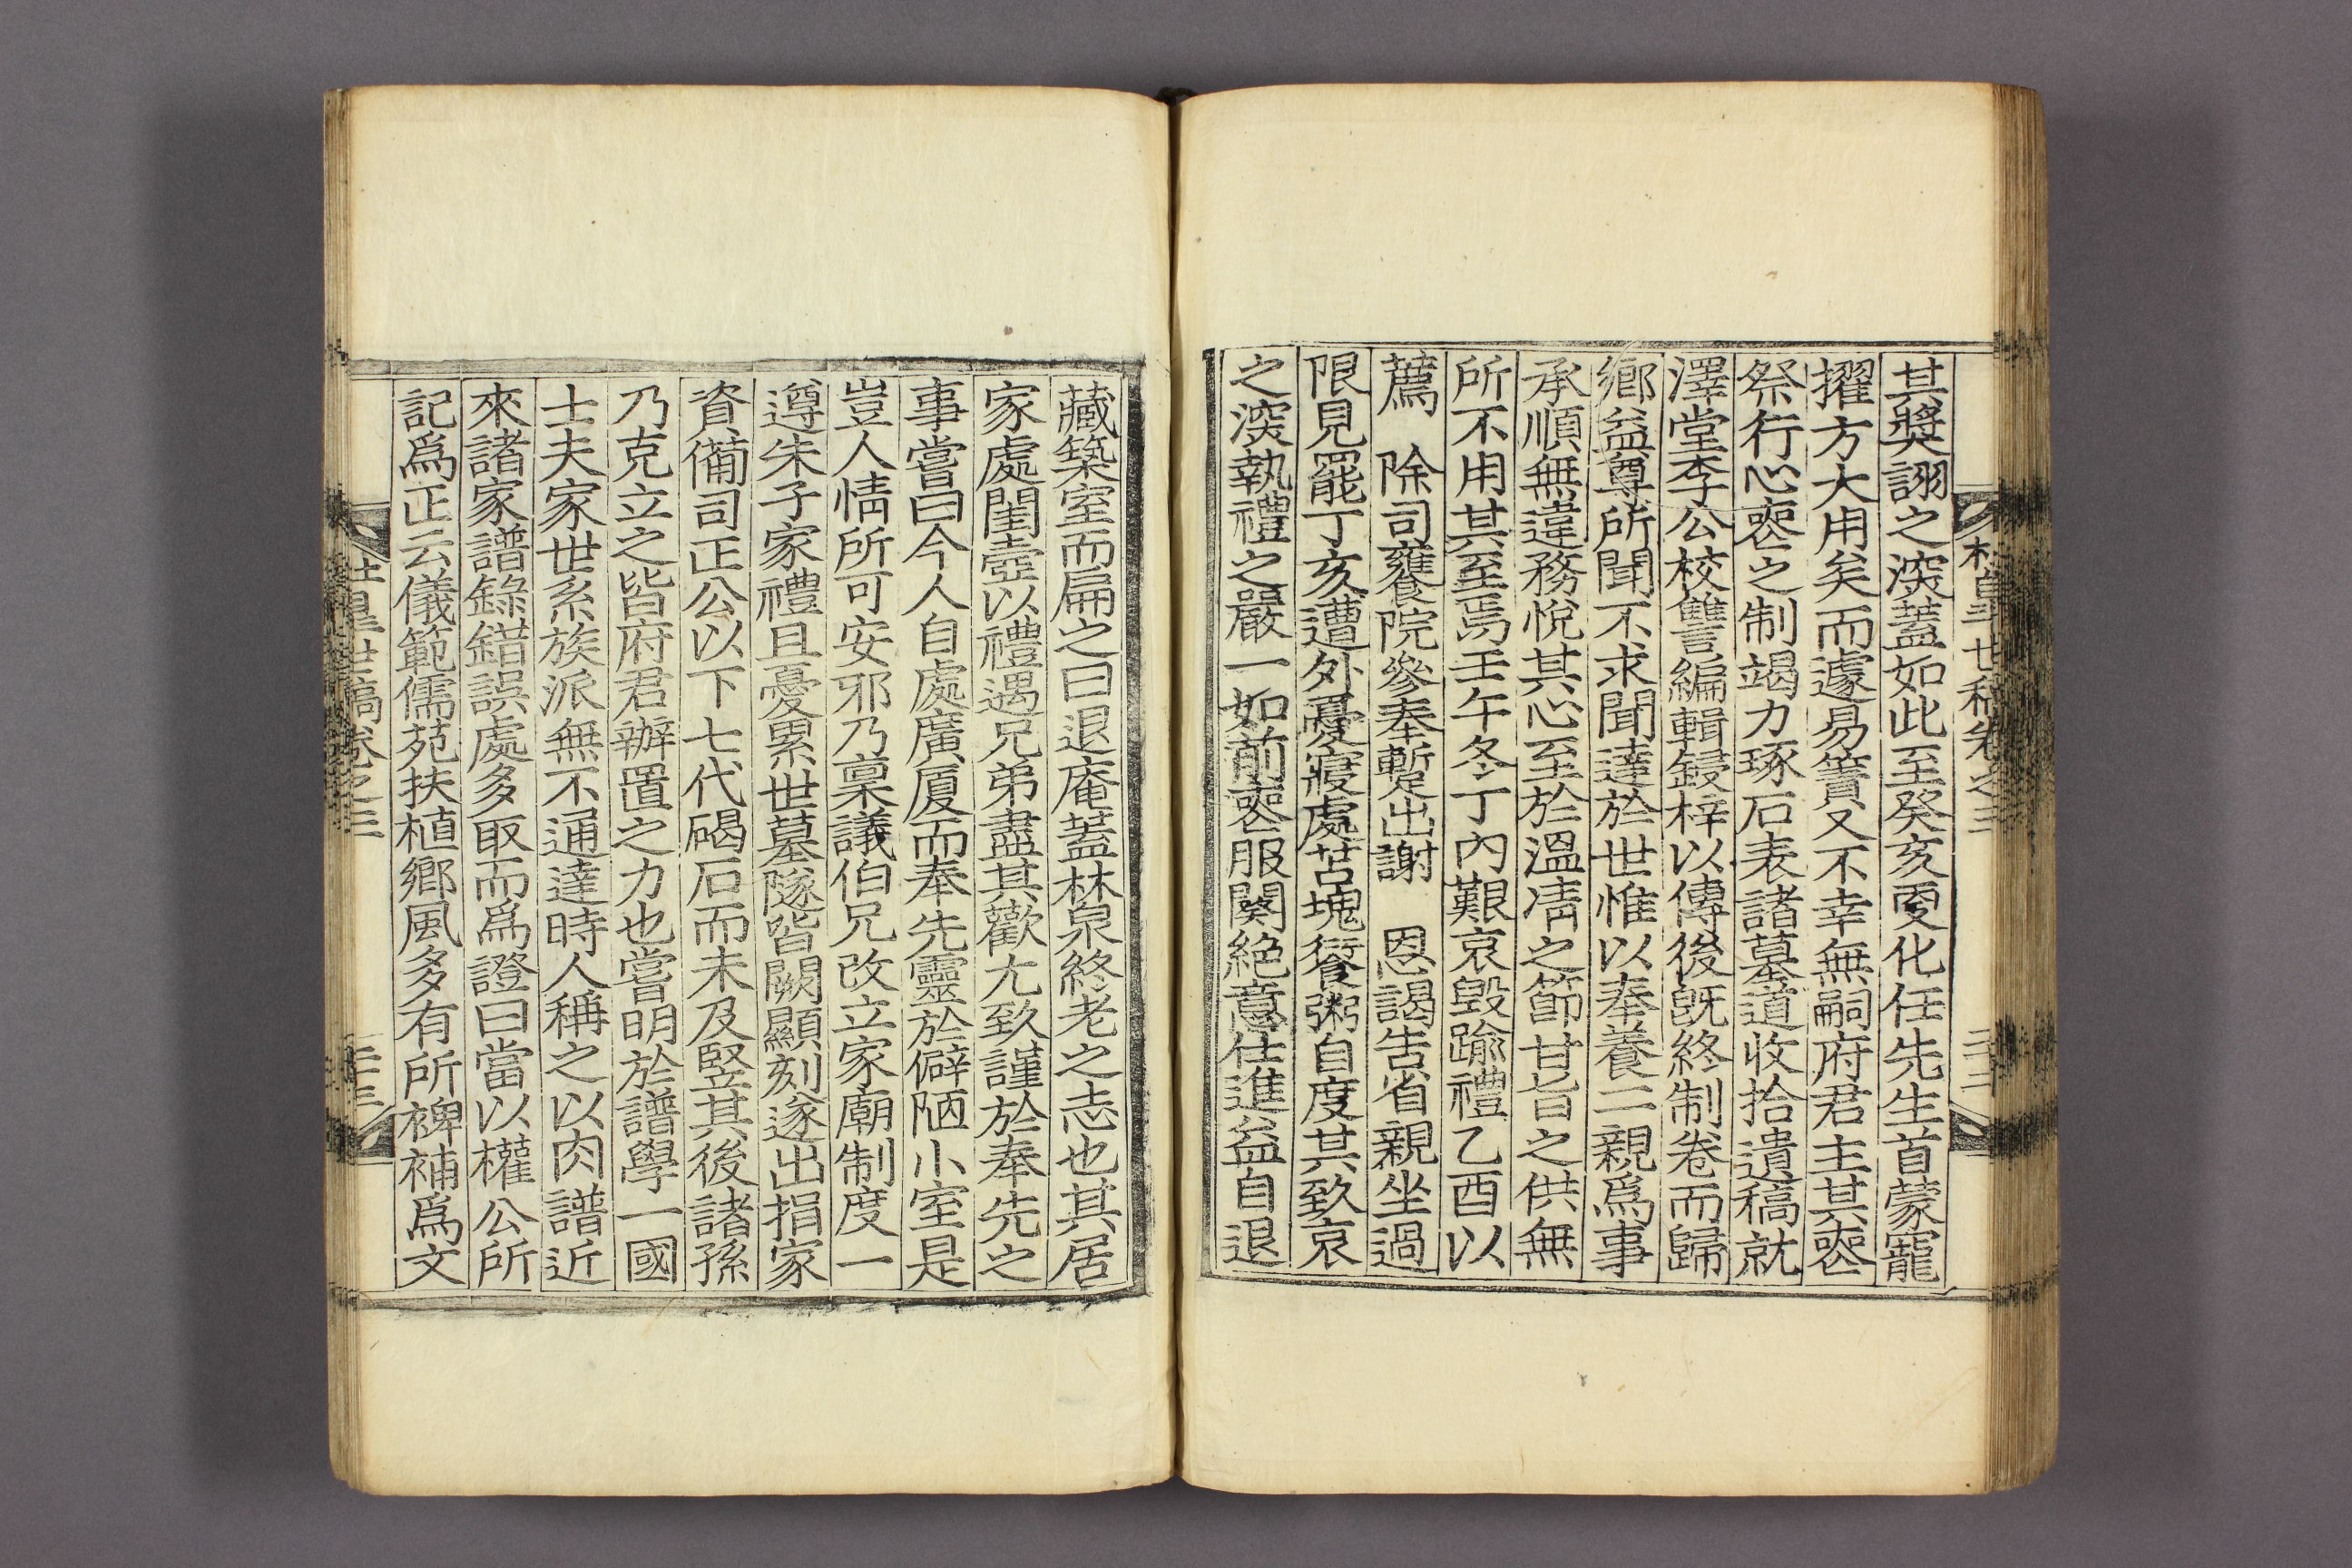 其奬詡之深蓋如此至癸亥更化任先生首蒙寵
擢方大用矣而遽易簀又不幸無嗣府君主其喪
祭行心喪之制竭力琢石表諸墓道收拾遺稿就
澤堂李公校讐編輯鋟梓以傳後旣終制卷而歸
鄕益尊所聞不求聞達於世惟以奉養二親爲事
承順無違務悅其心至於溫凊之節甘旨之供無
所不用其至焉壬午冬丁內艱哀毁踰禮乙酉以
薦　除司饔院參奉暫出謝　恩謁告省親坐過
限見罷丁亥遭外憂寢處苫塊饘粥自度其致哀
之深執禮之嚴一如前喪服闋絶意仕進益自退
藏築室而扁之曰退庵蓋林泉終老之志也其居
家處閨壼以禮遇兄弟盡其歡尤致謹於奉先之
事嘗曰今人自處廣厦而奉先靈於僻陋小室是
豈人情所可安邪乃稟議伯兄改立家廟制度一
遵朱子家禮且憂累世墓隧皆闕顯刻遂出捐家
資備司正公以下七代碣石而未及竪其後諸孫
乃克立之皆府君辦置之力也嘗明於譜學一國
士夫家世系族派無不通達時人稱之以肉譜近
來諸家譜錄錯誤處多取而爲證曰當以權公所
記爲正云儀範儒苑扶植鄕風多有所裨補爲文
世稿卷之三
二十三